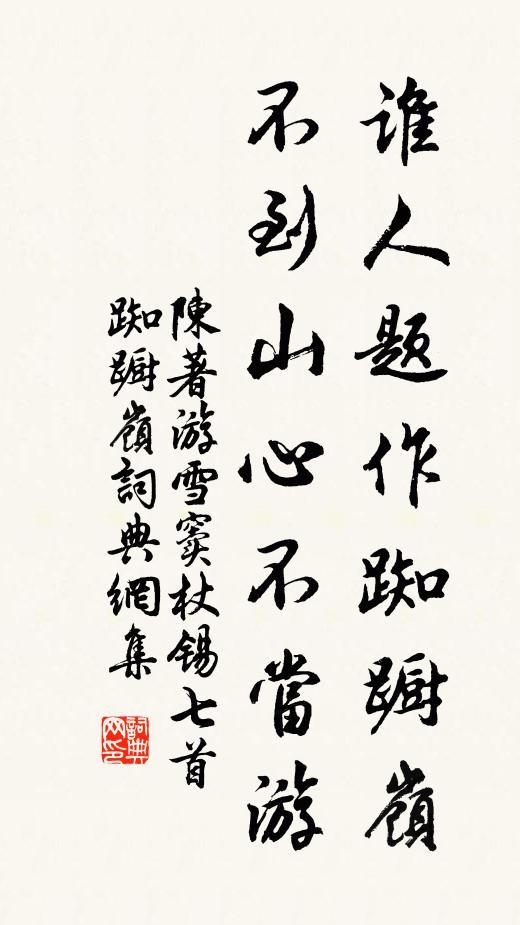 誰人題作踟躕嶺
不到山心不當游
陳著游雪竇杖錫七首
踟躕嶺詞典網集
詞典网印